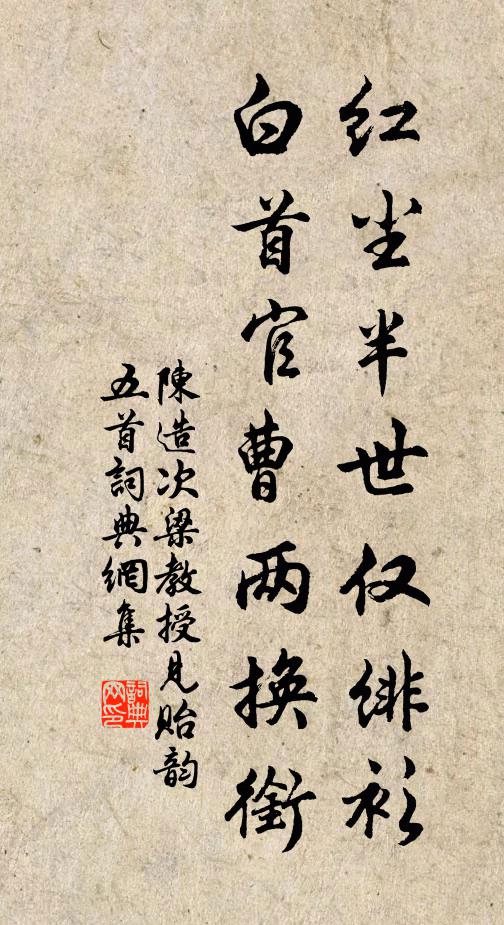 红尘半世仅绯衫
白首官曹两换衔
陳造次梁教授見貽韵
五首詞典網集
詞典網印